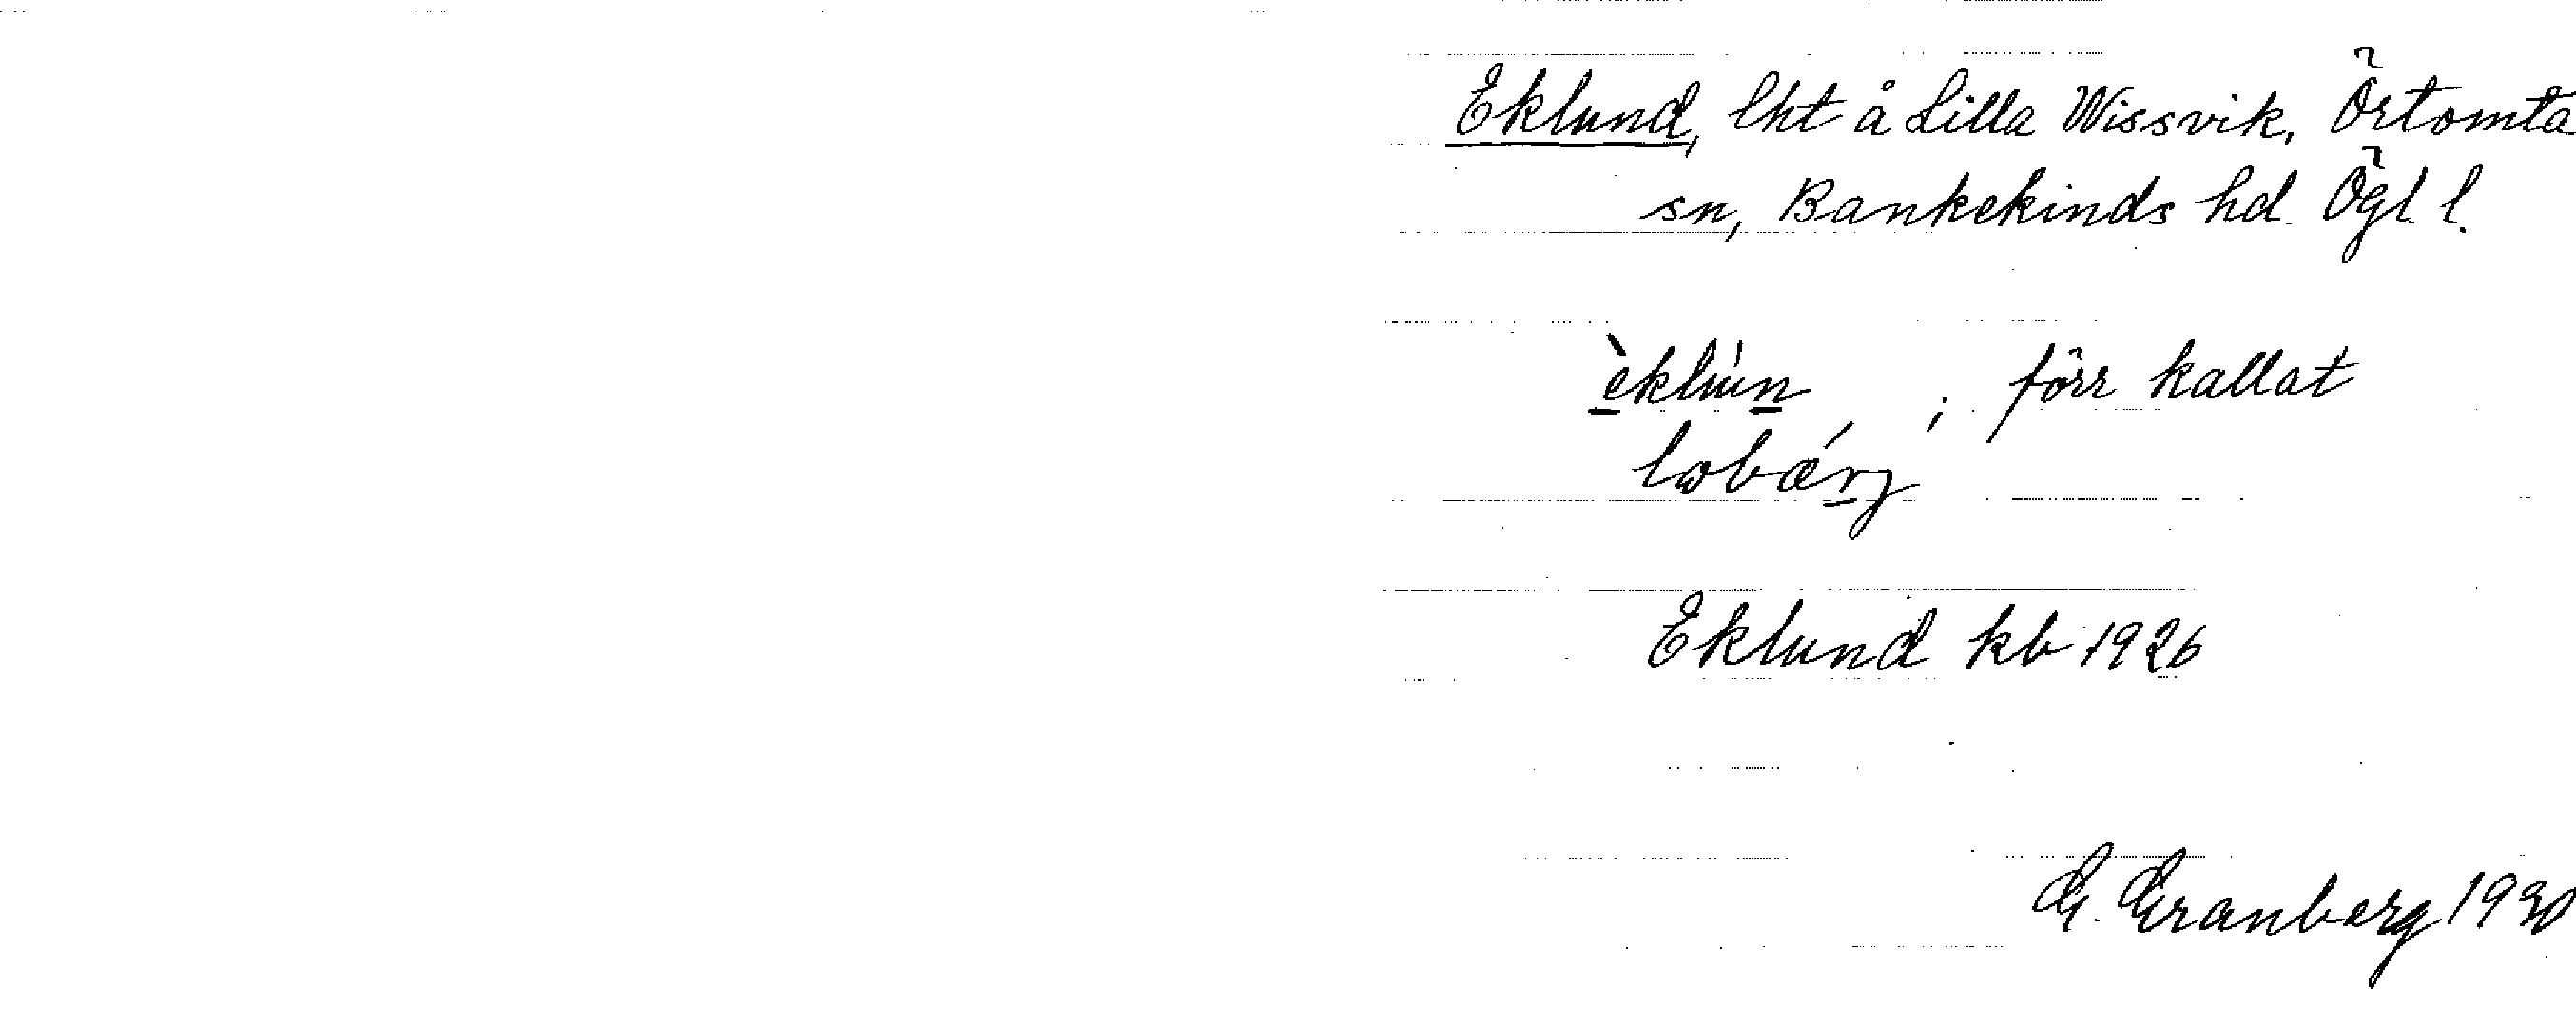 Eklund, lht å Lilla Wissvik, Örtomta
sn, Bankekinds hd. Ögl l.
èklún ; förr kallat
lobærj
Eklund kb 1926
G. Granberg 1930